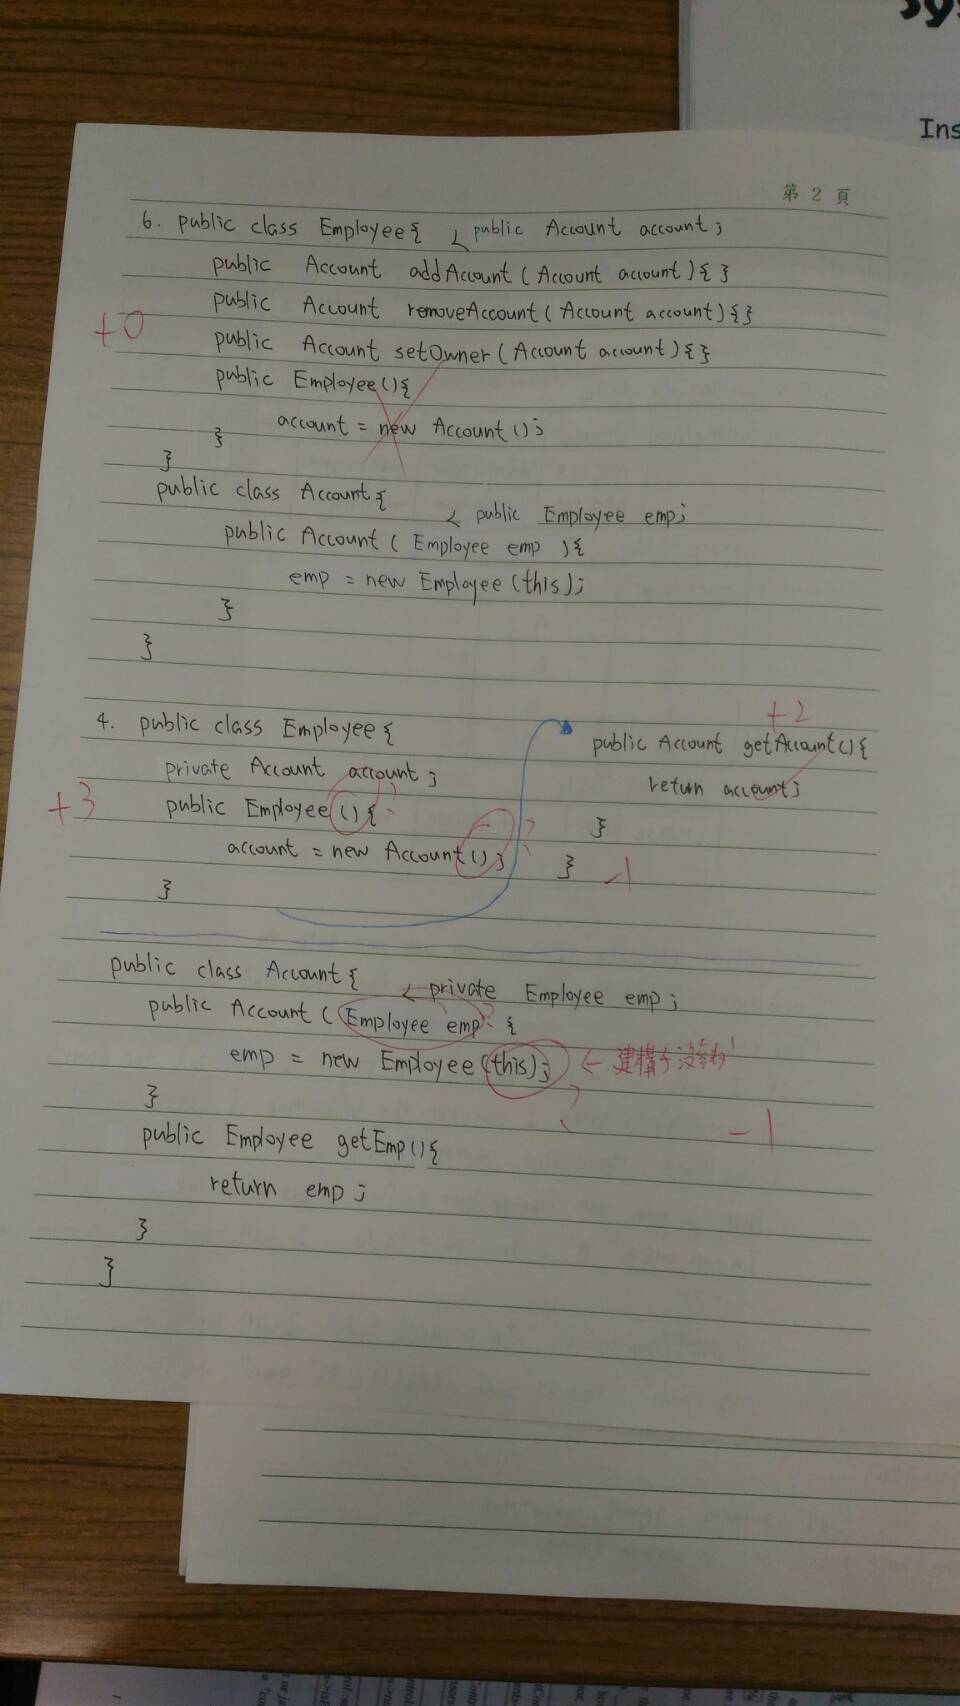 Ins
第 2 頁
6. public class Employee{ < public Account account;
public Account addAccount (Account account){ }
public Account removeAccount (Account account){}
+0
public Account setOwner (Account account){}
public Employee(){
account = new Account();
}
}
public class Account{
< public Employee emp;
public Account ( Employee emp ){
emp = new Employee (this);
}
}
4. public class Employee{
private Account account;
+3
public Employee(){
account = new Account();
}
+2
public Account getAccount(){
return account;
}
}
-1
public class Account{
< private Employee emp;
public Account (Employee emp {
emp = new Employee (this);
← 建構子沒參數
-1
}
public Employee getEmp(){
return emp;
}
}